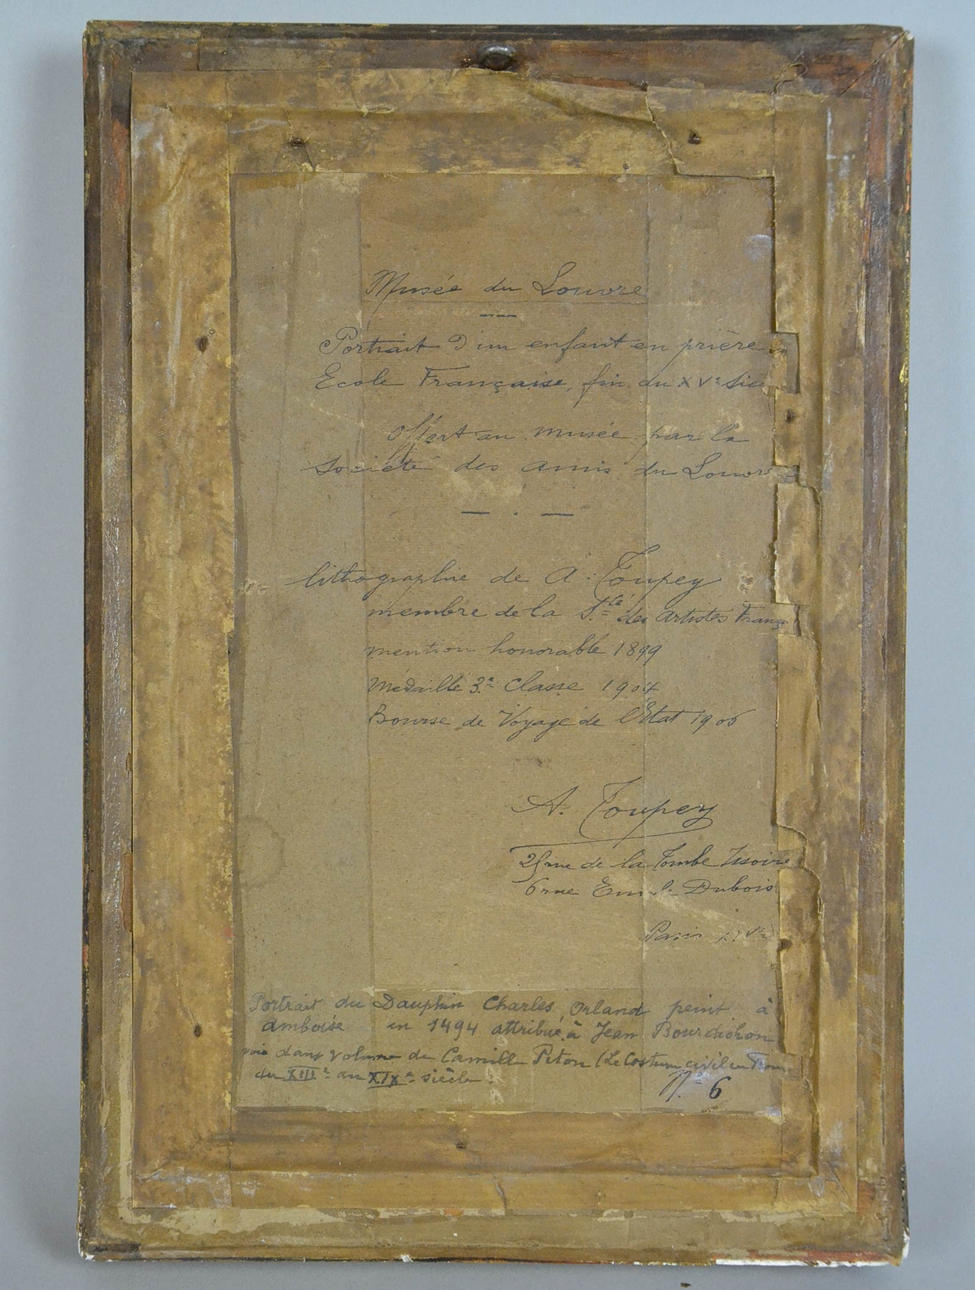 Musée du Louvre
Portrait d'un enfant en prière
Ecole Française, fin du XVe Siè
offert au musée par la
Société des amis du Louvre
lithographie de A. Toupey
membre de la Sté des Artistes Franç
mention honorable 1899
Médaille 3e Classe 1904
Bourse de Voyage de l'Etat 1906
A. Toupey
rue de la Tombe Issoire
6 rue Emile Dubois
Paris
Portrait du Dauphin Charles Orland peint à
Amboise en 1494 attribué à Jean Bourdichon
voir dans volume de Camille Piton (Le Costume civil en Fran
du XIIIe au XIXe siècle.
N. 6